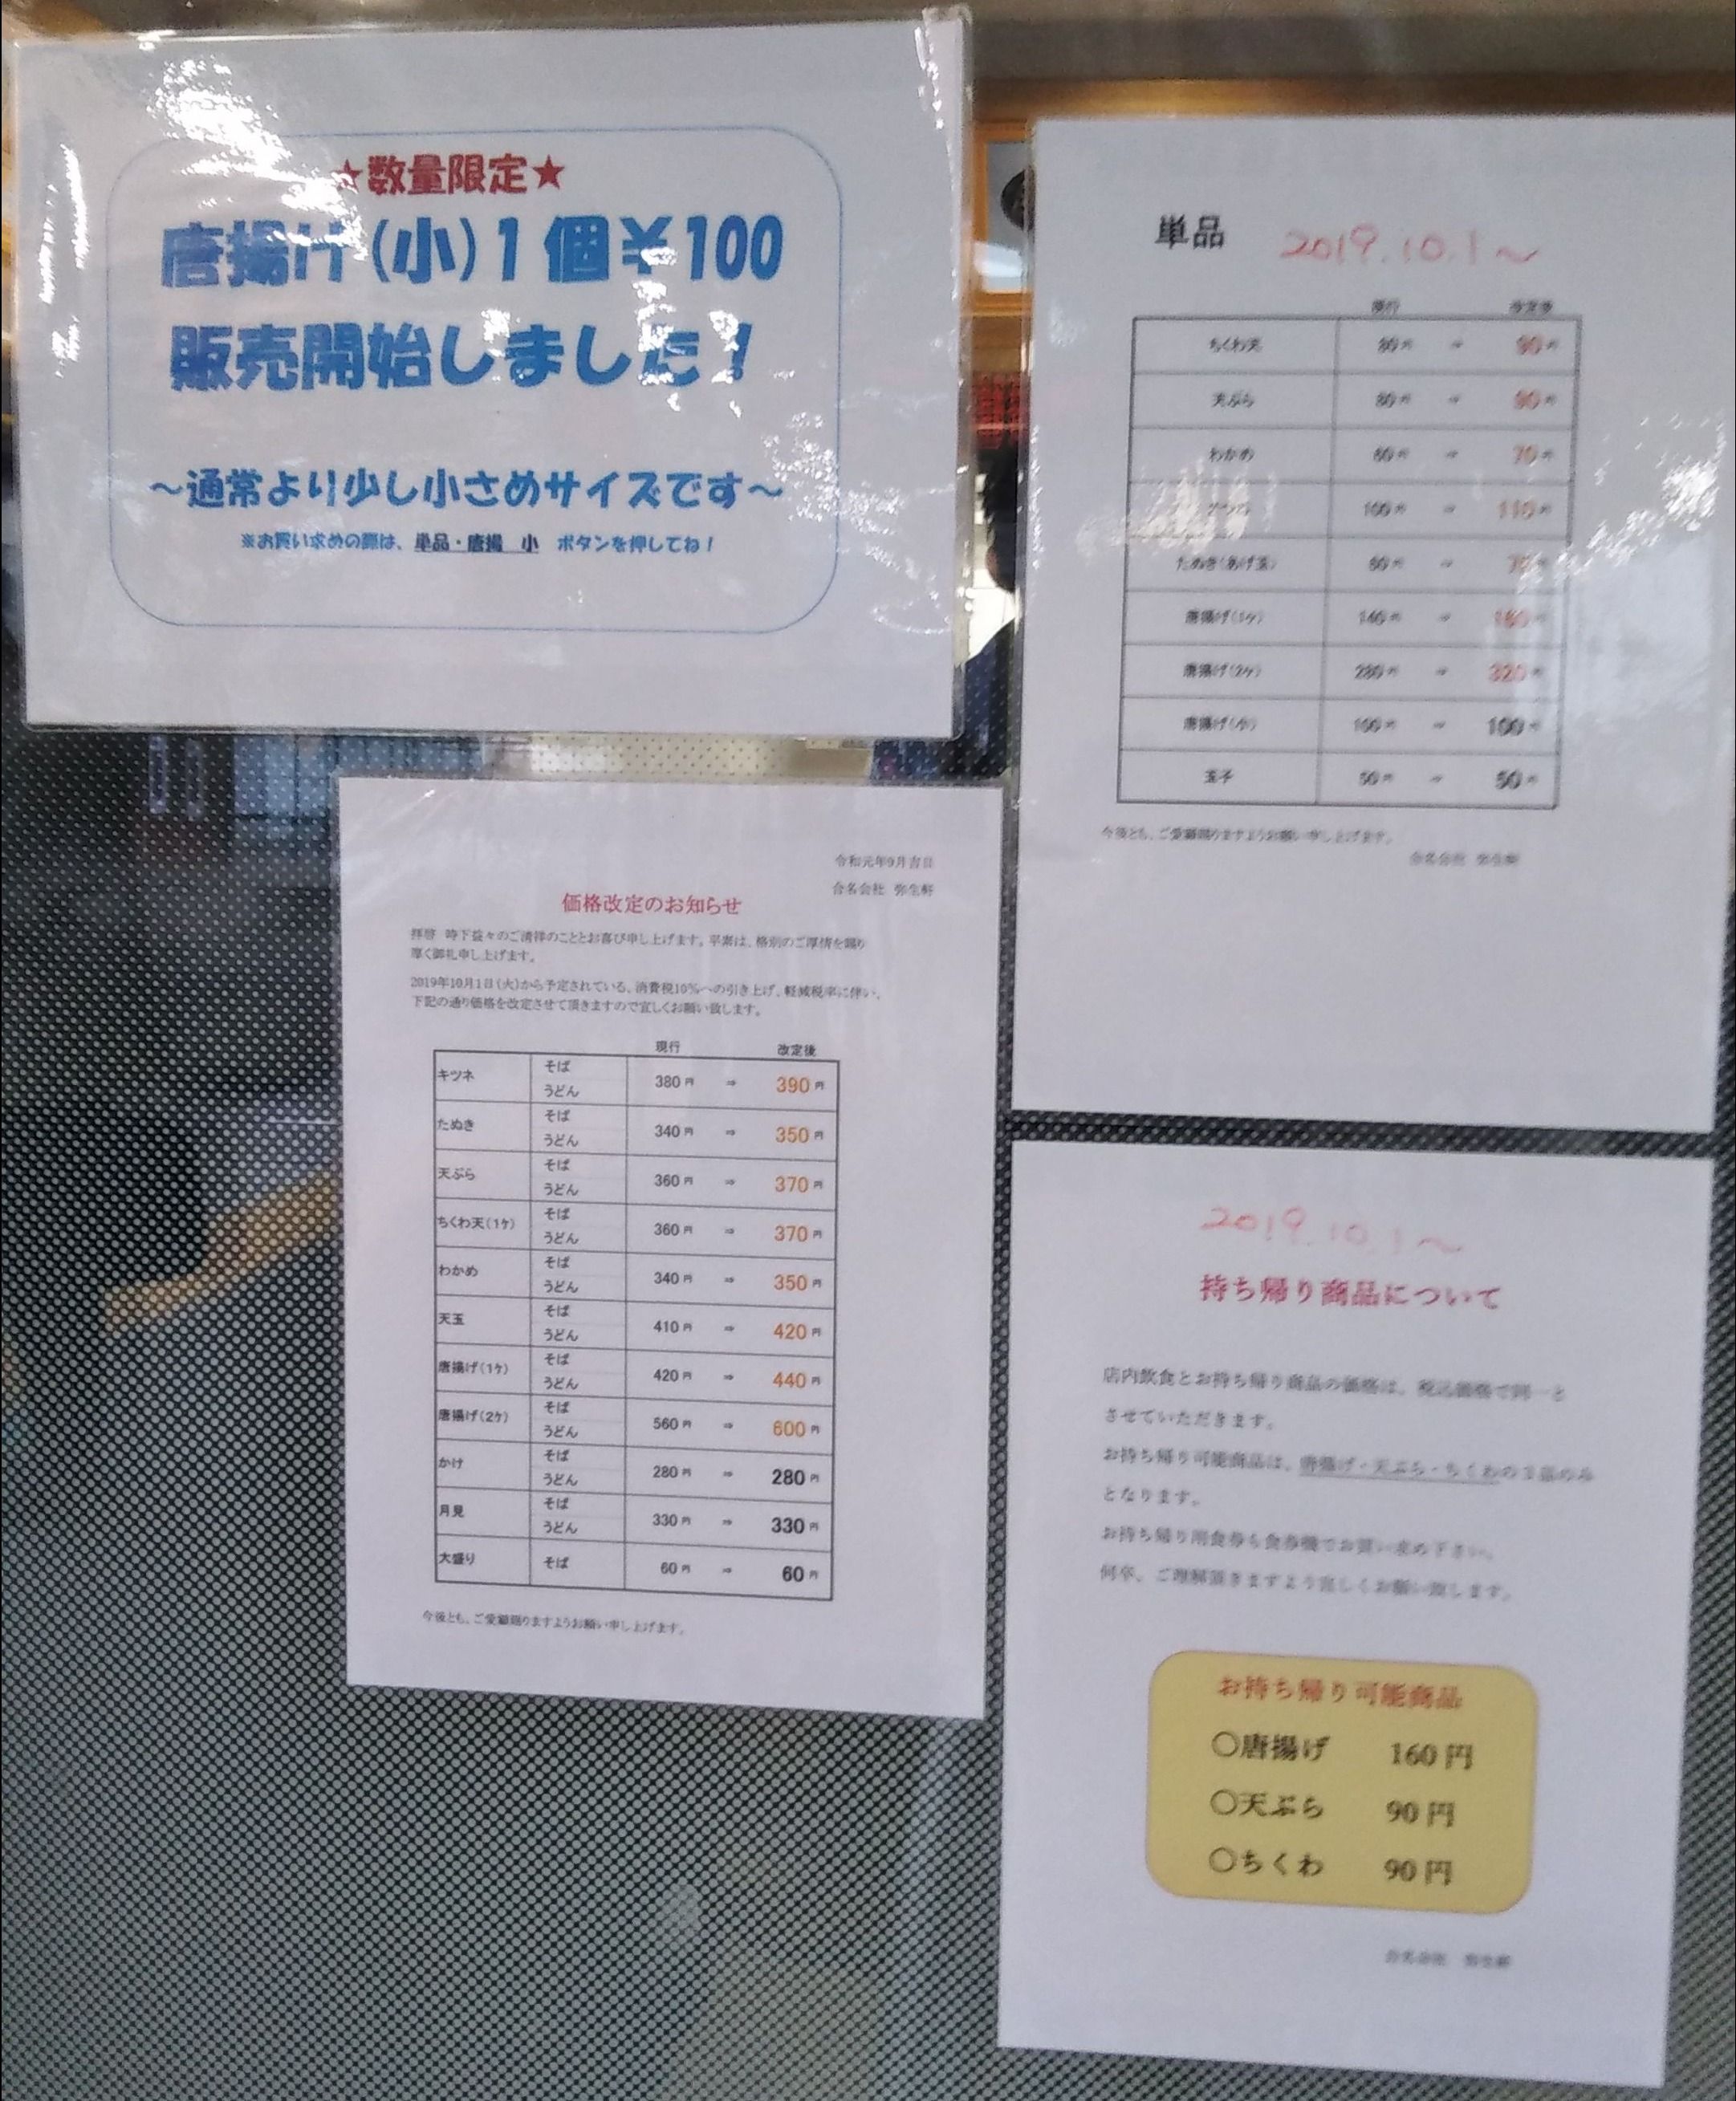 ★数量限定★
唐揚げ(小)1個￥100
販売開始しました！
～通常より少し小さめサイズです～
※お買い求めの際は、単品・唐揚 小 ボタンを押してね！
単品 2019.10.1～
現行 改定後
ちくわ天 80円 ⇒ 90円
天ぷら 80円 ⇒ 90円
わかめ 60円 ⇒ 70円
100円 ⇒ 110円
たぬき(あげ玉) 60円 ⇒
唐揚げ(1ケ) 140円 ⇒ 160円
唐揚げ(2ケ) 280円 ⇒ 320円
唐揚げ(小) 100円 ⇒ 100円
玉子 50円 ⇒ 50円
今後とも、ご愛顧賜りますようお願い申し上げます。
合名会社 弥生軒
令和元年9月吉日
合名会社 弥生軒
価格改定のお知らせ
拝啓 時下益々のご清祥のこととお喜び申し上げます。平素は、格別のご厚情を賜り
厚く御礼申し上げます。
2019年10月1日(火)から予定されている、消費税10%への引き上げ、軽減税率に伴い、
下記の通り価格を改定させて頂きますので宜しくお願い致します。
現行 改定後
キツネ そば うどん 380円 ⇒ 390円
たぬき そば うどん 340円 ⇒ 350円
天ぷら そば うどん 360円 ⇒ 370円
ちくわ天(1ケ) そば うどん 360円 ⇒ 370円
わかめ そば うどん 340円 ⇒ 350円
天玉 そば うどん 410円 ⇒ 420円
唐揚げ(1ケ) そば うどん 420円 ⇒ 440円
唐揚げ(2ケ) そば うどん 560円 ⇒ 600円
かけ そば うどん 280円 ⇒ 280円
月見 そば うどん 330円 ⇒ 330円
大盛り そば 60円 ⇒ 60円
今後とも、ご愛顧賜りますようお願い申し上げます。
2019.10.1～
持ち帰り商品について
店内飲食とお持ち帰り商品の価格は、税込価格で同一と
させていただきます。
お持ち帰り可能商品は、唐揚げ・天ぷら・ちくわの3品のみ
となります。
お持ち帰り用食券も食券機でお買い求め下さい。
何卒、ご理解頂きますよう宜しくお願い致します。
お持ち帰り可能商品
〇唐揚げ 160円
〇天ぷら 90円
〇ちくわ 90円
合名会社 弥生軒